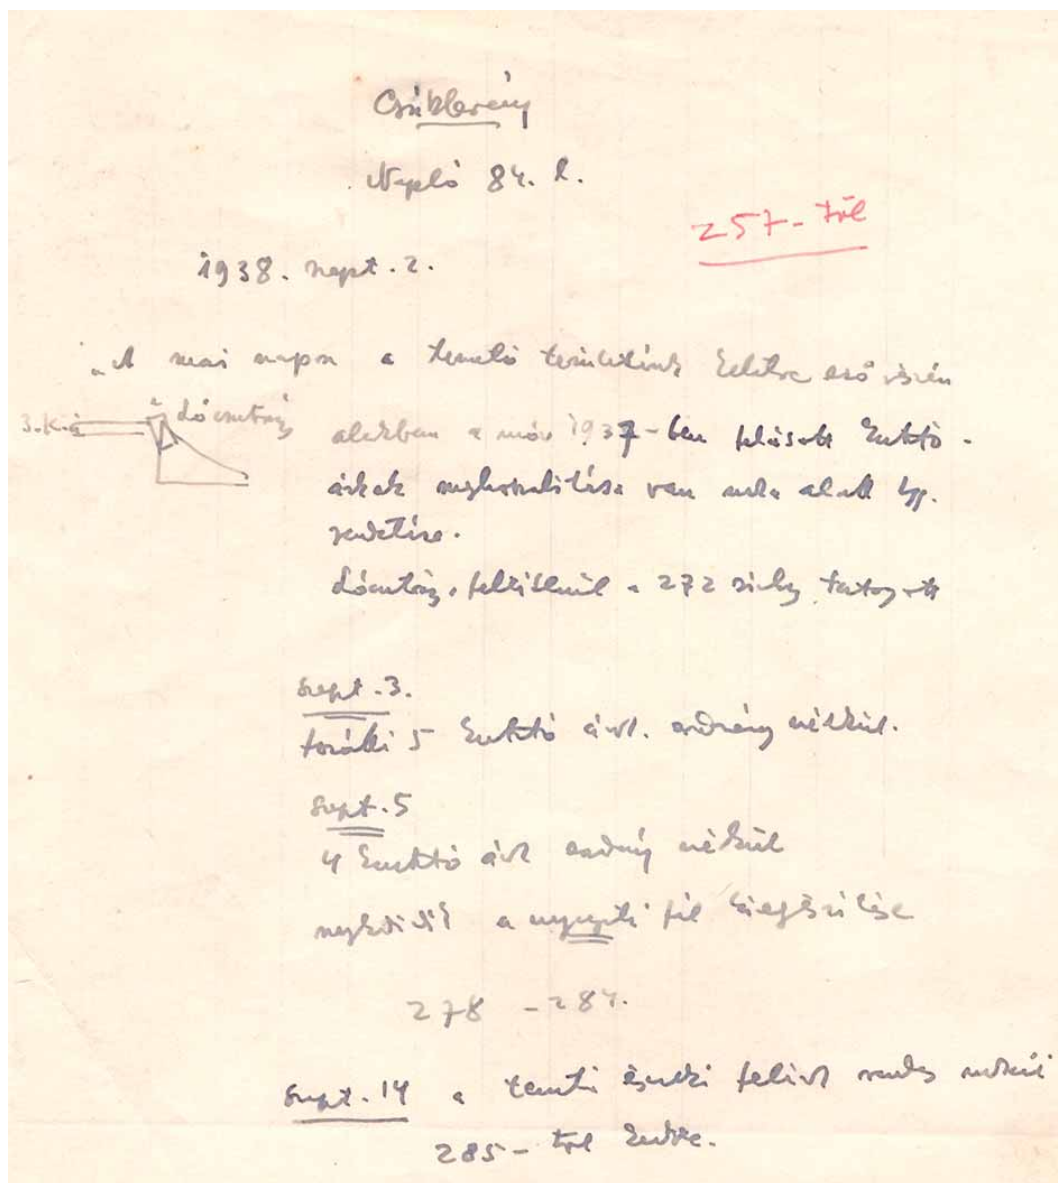 Csákberény
Napló 84. l.
257-től
1938. szept. 2.
"A mai napon a temető területünk keletre eső részén
3. K. á. Lócsontváz
alakban a már 1937-ben felásott kutató-
árkok meghosszabbítása van
Lócsontváz, 272 sírhoz tartozott
Szept. 3.
további 5 kutató árok. eredmény nélkül.
Szept. 5
4 kutató árok eredmény nélkül
megkezdik a nyugati fél kiegészítése
278 – 284.
Szept. 14 a temető északi felét
285-től kezdve.